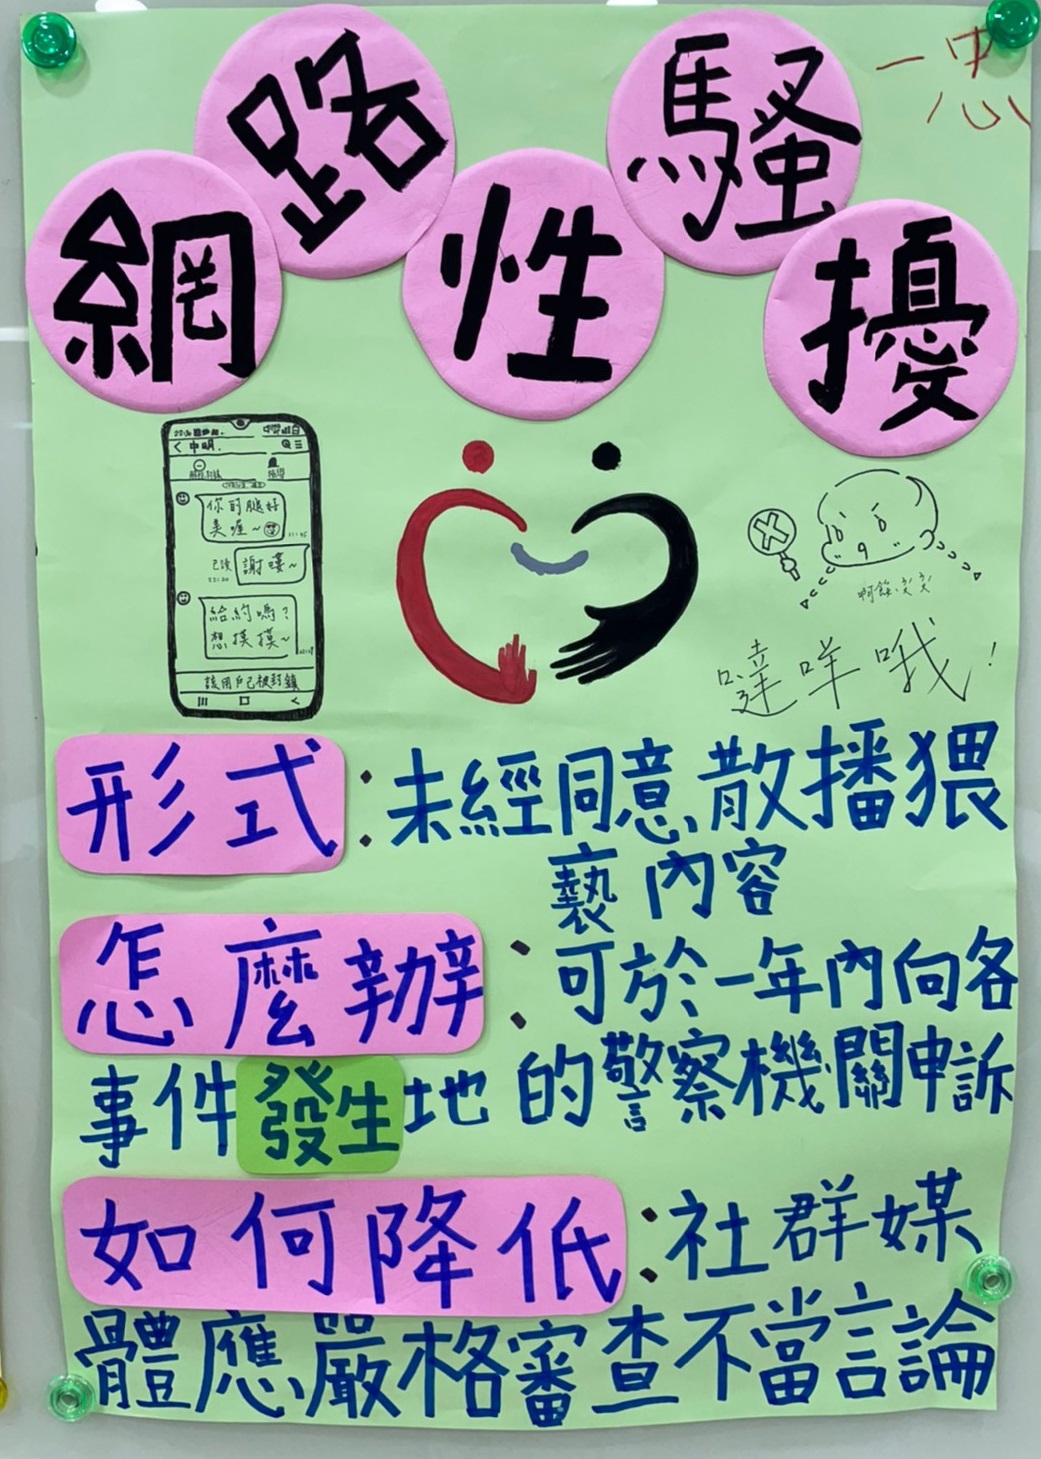 一忠
網路性騷擾
< 中明.
你的腿好
美喔~
已讀
謝嘍~
給約嗎?
想摸摸~
該用戶已被封鎖
噠咩哦!
形式:未經同意散播猥
褻內容
怎麼辦:可於一年內向各
事件發生地的警察機關申訴
如何降低:社群媒
體應嚴格審查不當言論